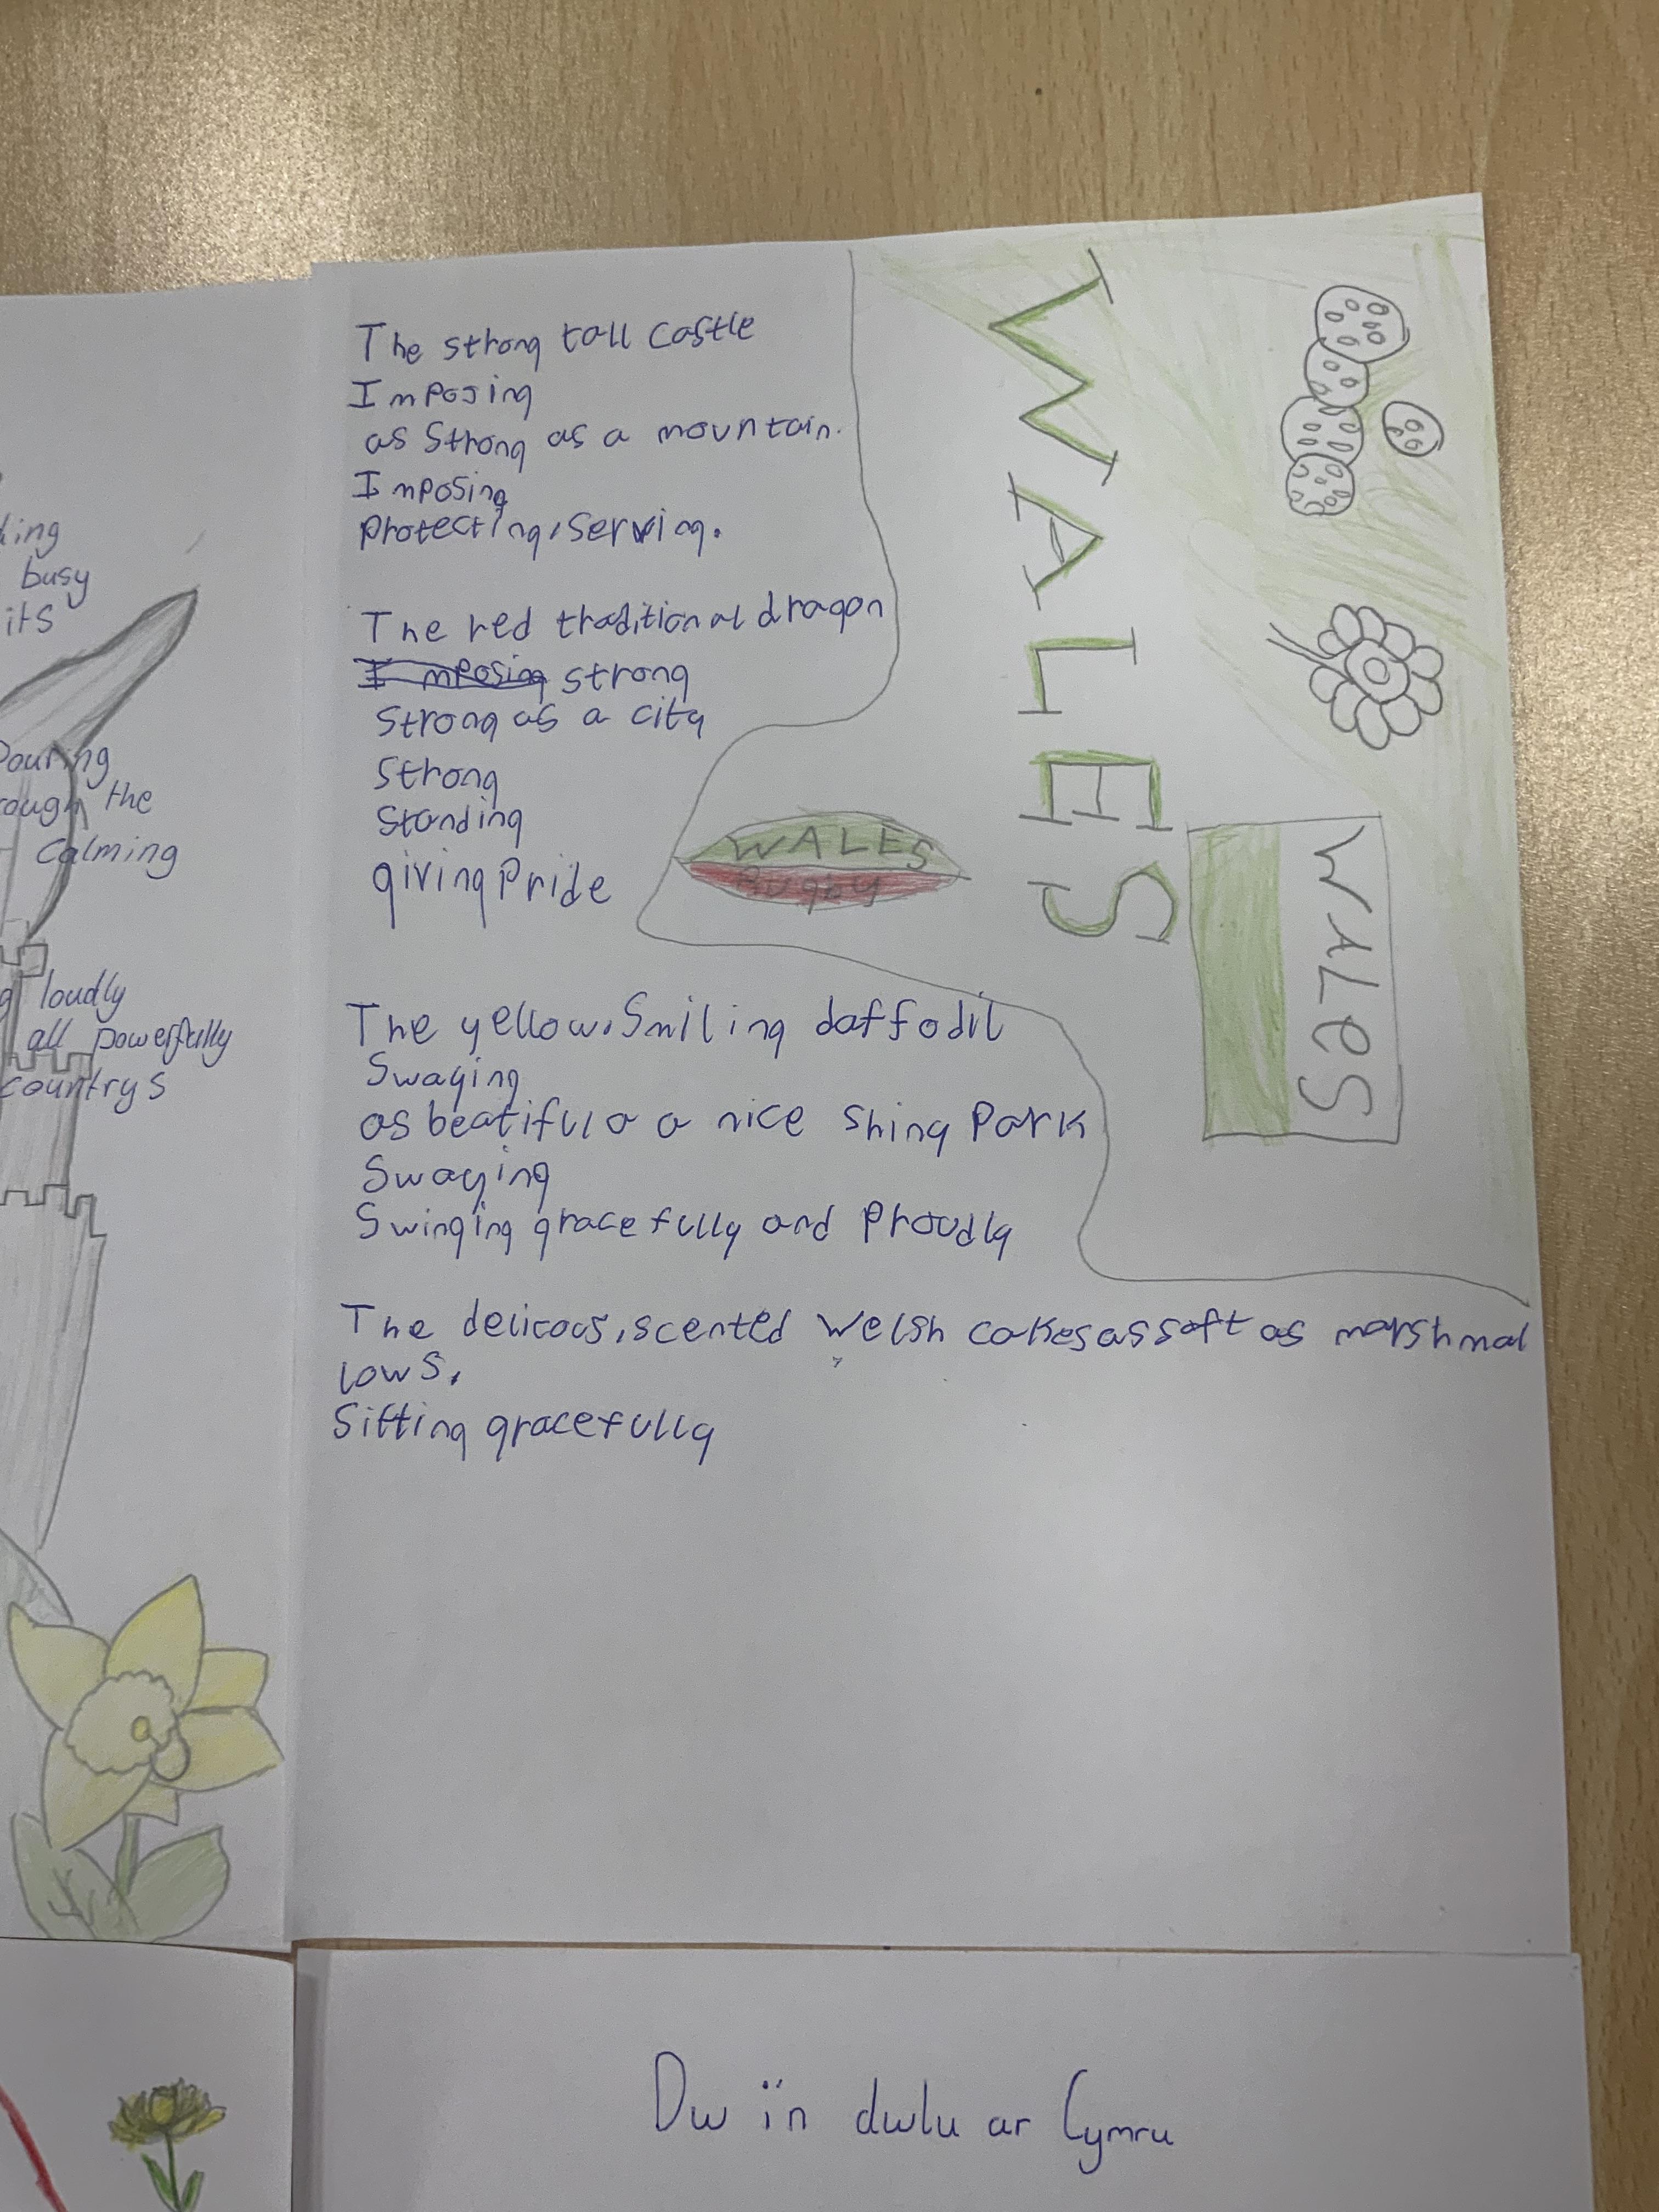 The strong tall castle
Imposing
as Strong as a mountain.
Imposing
Protecting, Serving.
The red traditional dragon
Imposing strong
Strong as a city
Strong
Standing
giving Pride
The yellow, Smiling daffodil
Swaying
as beatiful a a nice shing Park
Swaying
Swinging gracefully and Proudly
The delicous, scented Welsh cakes as soft as marshmal
lows,
Sitting gracefully
WALES
WALES
Rugby
WALES
king
busy
its
Pouring
rough the
Calming
loudly
all powerfully
countrys
Dw i'n dwlu ar Cymru